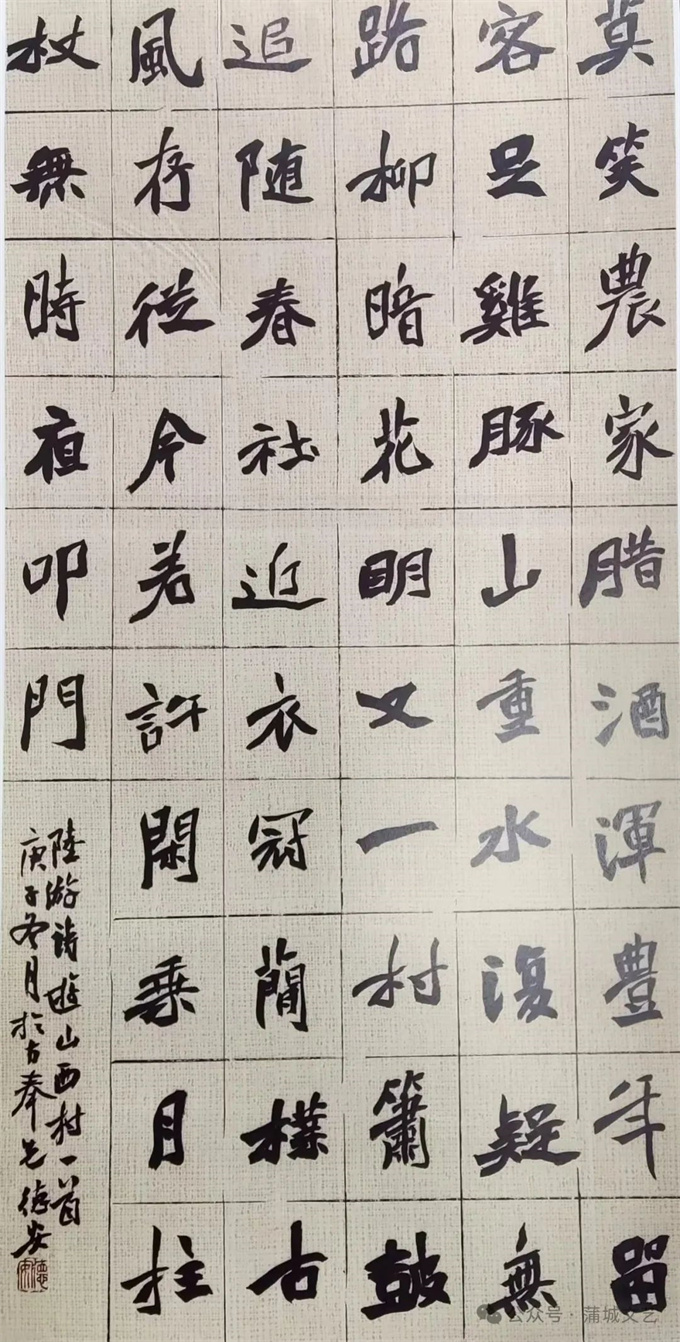 莫笑農家腊酒渾豊年留
客足雞豚山重水復疑無
路柳暗花明又一村簫鼓
追随春社近衣冠蕳樸古
風存從今若許閑乘月拄
杖無時夜叩門
陸游詩遊山西村一首
庚子冬月於古奉先德安
德安
公众号·蒲城文艺